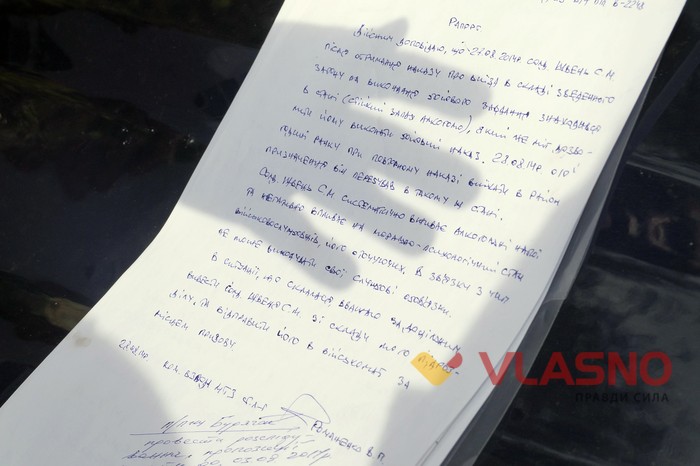 ПП В-2248
Рапорт
Дійсним доповідаю, що 27.08.2014р солд. Швець С.М.
після отримання наказу про виїзд в складі зведенного
загону на виконання бойового завдання знаходився
в стані (стійкий запах алкоголю), який не міг дозво-
лити йому виконати бойовий наказ. 28.08.14р о 10
годині ранку при повторному наказі виїхати в район
призначення він перебував в такому ж стані.
Солд. Швець С.М. систематично вживає алкогольні напої
та негативно впливає на морально-психологічний стан
військовослужбовців, його оточуючих. В зв'язку з чим
не може виконувати свої службові обов'язки.
В ситуації, що склалася вважаю за доцільним
вивести солд. Швеця С.М. зі складу мого підроз-
ділу, та відправити його в військомат за
місцем призову.
28.08.14р ком. МТЗ
Романенко В.П.
провести розслід.
03.09.2014р
VLASNO
ПРАВДИ.СИЛА